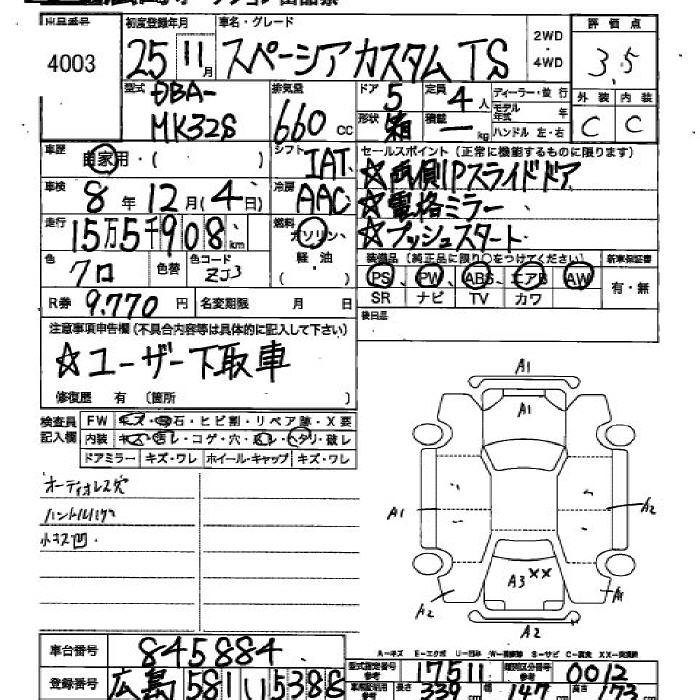 出品番号 初度登録年月 車名・グレード 2WD 評価点
4003 25 11月 スペーシアカスタム TS ・4WD 3.5
型式 DBA- 排気量 ドア 5 定員 4人 ディーラー・並行 外装 内装
MK32S 660 CC 形状 箱 積載 ー kg モデル年式 年 C C
ハンドル 左・右
車歴 自家用・( ) シフト IAT セールスポイント(正常に機能するものに限ります)
車検 8年 12月 (4日) 冷房 AAC ☆両側Pスライドドア
☆電格ミラー
走行 15万5千908km 燃料 ガソリン、 ☆プッシュスタート
軽油( )
色 クロ 色替 色コード ZJ3 装備品(純正品に限り○をつけてください) 新車保証書
PS、PW、ABS、エアB AW 有・無
R券 9.770円 名変期限 月 日 SR ナビ TV カワ
注意事項申告欄(不具合内容等は具体的に記入して下さい) 後日品
☆ユーザー下取車
修復歴 有 (箇所 )
検査員記入欄 FW キズ・飛石・ヒビ割・リペア跡・X要
内装 キズ・汚レ・コゲ・穴・凹レ・ヘタリ・破レ
ドアミラー キズ・ワレ ホイール・キャップ キズ・ワレ
オーディオレス穴
小キズ凹
A1
A1
A1
A2
A3 XX
A2
A1
A2
A-キズ E-エクボ U-凹 S-サビ C-腐食
車台番号 845884 型式指定番号 参考 17511 類別区分番号 参考 0012
登録番号 広島 581 い 5388 長さ 339 147 高さ 173